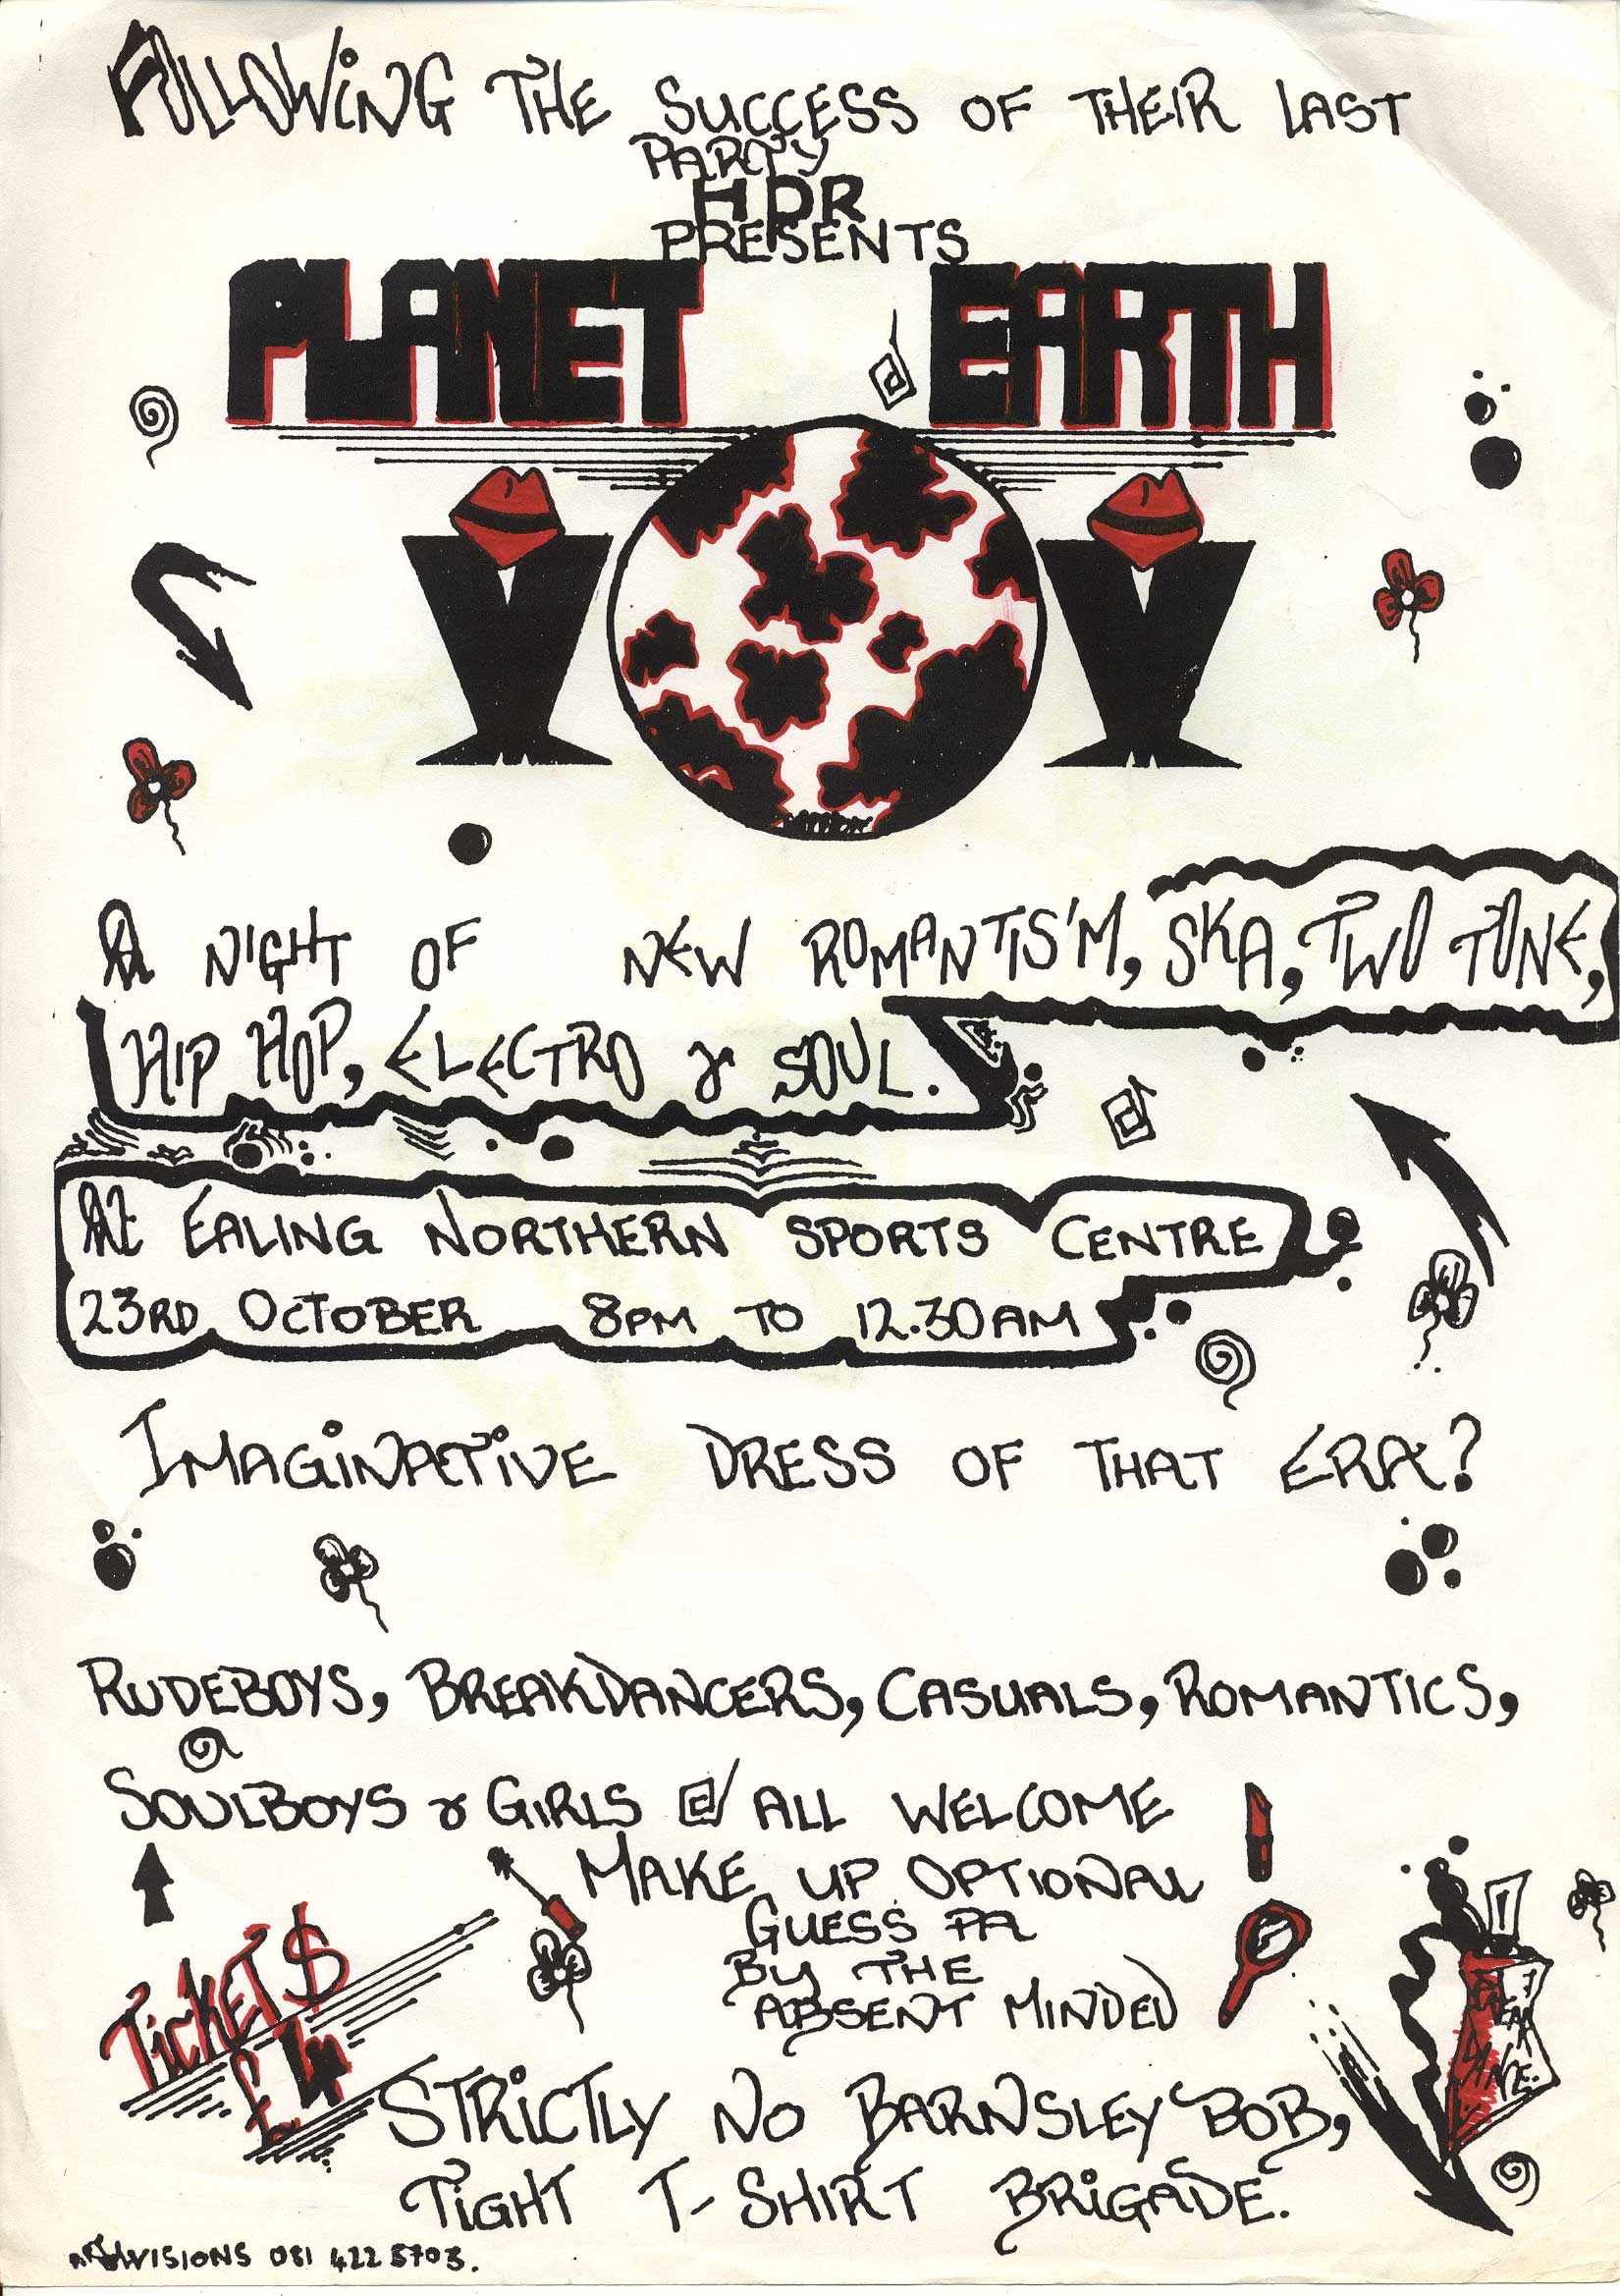 FOLLOWING THE SUCCESS OF THEIR LAST
PARTY
HDR
PRESENTS
PLANET EARTH
A NIGHT OF NEW ROMANTIS'M, SKA, TWO TONE,
HIP HOP, ELECTRO & SOUL.
At EALING NORTHERN SPORTS CENTRE
23RD OCTOBER 8PM TO 12.30AM
IMAGINATIVE DRESS OF THAT ERA?
RUDEBOYS, BREAKDANCERS, CASUALS, ROMANTICS,
SOULBOYS & GIRLS ALL WELCOME
MAKE UP OPTIONAL
GUESS PA
BY THE
ABSENT MINDED
TICKETS
£4
STRICTLY NO BARNSLEY BOB,
TIGHT T-SHIRT BRIGADE.
VISIONS 081 422 5703.